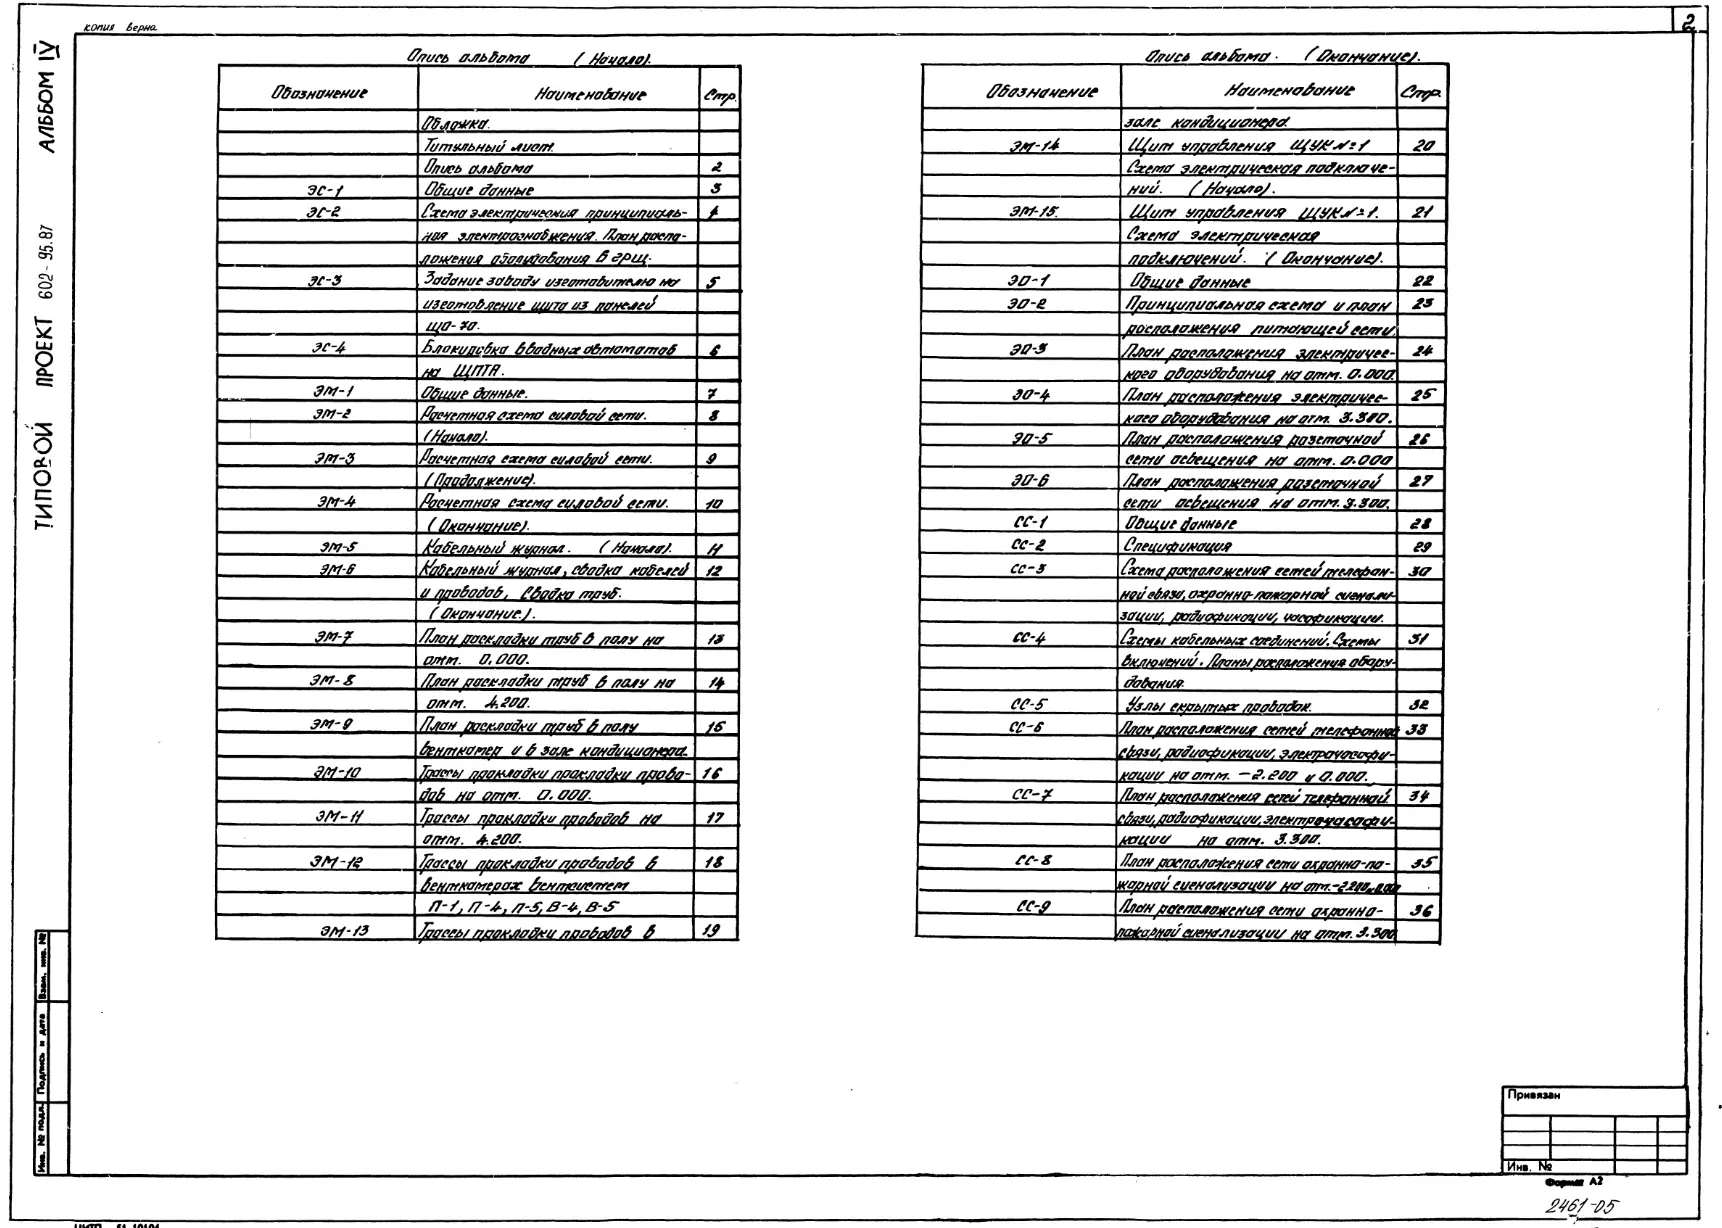 копия верна
2
АЛЬБОМ IV
ТИПОВОЙ ПРОЕКТ 602-95.87
Опись альбома (Начало).
Обозначение Наименование Стр.
Обложка.
Титульный лист.
Опись альбома 2
ЭС-1 Общие данные 3
ЭС-2 Схема электрическия принципиаль- 4
ная электроснабжения. План распо-
ложения оборудования в ГРЩ.
ЭС-3 Задание заводу изготовителю на 5
изготовление щита из панелей
ЩО-70.
ЭС-4 Блокировка вводных автоматов 6
на ЩПТА.
ЭМ-1 Общие данные. 7
ЭМ-2 Расчетная схема силовой сети. 8
(Начало).
ЭМ-3 Расчетная схема силовой сети. 9
(Продолжение).
ЭМ-4 Расчетная схема силовой сети. 10
(Окончание).
ЭМ-5 Кабельный журнал. (Начало). 11
ЭМ-6 Кабельный журнал, сводка кабелей 12
и проводов, Сводка труб.
(Окончание).
ЭМ-7 План раскладки труб в полу на 13
отм. 0.000.
ЭМ-8 План раскладки труб в полу на 14
отм. 4.200.
ЭМ-9 План раскладки труб в полу 15
венткамер и в зале кондиционера.
ЭМ-10 Трассы прокладки прокладки прово- 16
дов на отм. 0.000.
ЭМ-11 Трассы прокладки проводов на 17
отм. 4.200.
ЭМ-12 Трассы прокладки проводов в 18
венткамерах вентсистем
П-1, П-4, П-5, В-4, В-5
ЭМ-13 Трассы прокладки проводов в 19
Опись альбома. (Окончание).
Обозначение Наименование Стр.
зале кондиционера
ЭМ-14 Щит управления ЩУК№1 20
Схема электрическая подключе-
ний. (Начало).
ЭМ-15. Щит управления ЩУК№1. 21
Схема электрическая
подключений. (Окончание).
ЭО-1 Общие данные 22
ЭО-2 Принципиальная схема и план 23
расположения питающей сети.
ЭО-3 План расположения электричес- 24
кого оборудования на отм. 0.000.
ЭО-4 План расположения электричес- 25
кого оборудования на отм. 3.300.
ЭО-5 План расположения розеточной 26
сети освещения на отм. 0.000
ЭО-6 План расположения розеточной 27
сети освещения на отм. 3.300.
СС-1 Общие данные 28
СС-2 Спецификация 29
СС-3 Схема расположения сетей телефон- 30
ной связи, охранно-пожарной сигнали-
зации, радиофикации, часофикации.
СС-4 Схемы кабельных соединений. Схемы 31
включений. Планы расположения обору-
дования.
СС-5 Узлы скрытых проводок. 32
СС-6 План расположения сетей телефонной 33
связи, радиофикации, электрочасофи-
кации на отм. -2.200 и 0.000.
СС-7 План расположения сетей телефонной 34
связи, радиофикации, электрочасофи-
кации на отм. 3.300.
СС-8 План расположения сети охранно-по- 35
жарной сигнализации на отм. -2.200 и 0.000
СС-9 План расположения сети охранно- 36
пожарной сигнализации на отм. 3.300
Взам. инв. №
Подпись и дата
Инв. № подл.
Привязан
Инв. №
Формат А2
2461-05